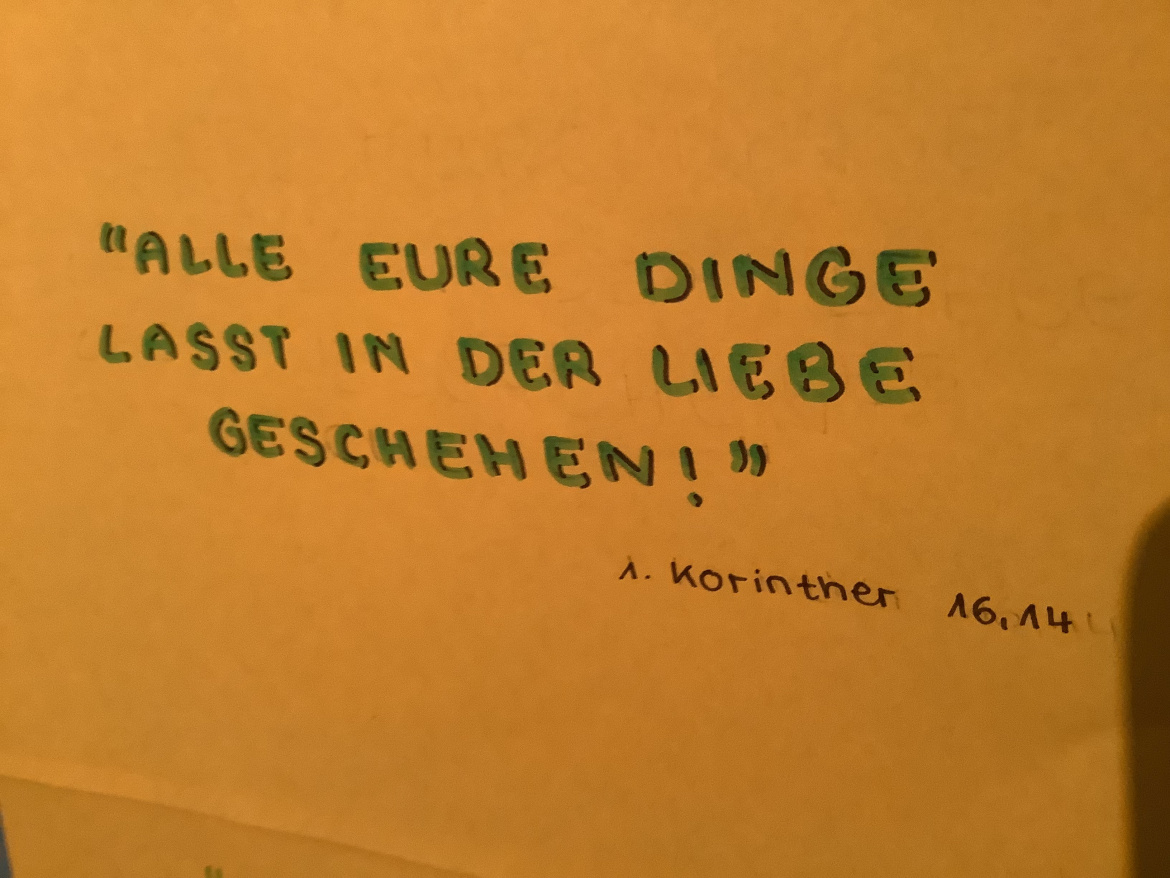 "ALLE EURE DINGE
LASST IN DER LIEBE
GESCHEHEN!"
1. Korinther 16,14